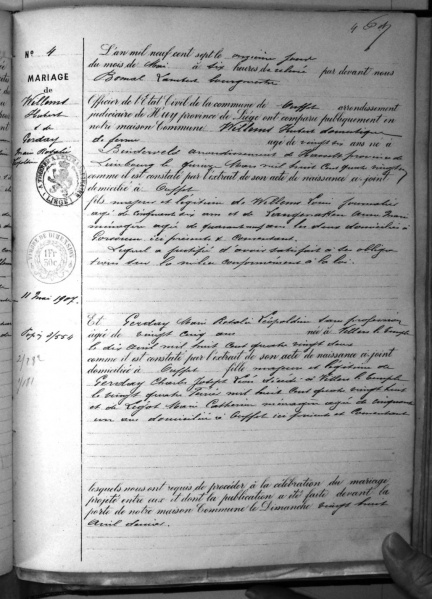 N° 4
MARIAGE
de
Willems
Hubert
et de
Gerday
Marie Rosalie
Léopoldine
11 Mai 1907.
L'an mil neuf cent sept le onzième jour
du mois de Mai à six heures de relevée par devant nous
Bomal Lambert bourgmestre
Officier de l'Etat Civil de la commune de Ouffet arrondissement
judiciaire de Huy province de Liège ont comparu publiquement en
notre maison Commune Willems Hubert domestique
de ferme âgé de vingt six ans né à
arrondissement de province de
Limbourg le quinze Mars mil huit cent quatre vingt
comme il est constaté par l'extrait de son acte de naissance ci-joint
domicilié à Ouffet
fils majeur et légitime de Willems journalier
âgé de cinquante six ans et de
ménagère âgée de quarante neuf ans les deux domiciliés à
ici présents et consentant.
Lequel a justifié d'avoir satisfait à ses obliga-
tions sur la milice conformément à la loi.
Et Gerday Marie Rosalie Léopoldine sans profession
âgée de vingt cinq ans née à Villers le Temple
le dix Août mil huit cent quatre vingt deux
comme il est constaté par l'extrait de son acte de naissance ci-joint
domiciliée à Ouffet fille majeure et légitime de
Gerday Charles Joseph décédé à Villers le Temple
le vingt quatre mil huit cent quatre vingt huit
et de Marie Catherine ménagère âgée de cinquante
un ans domiciliée à Ouffet ici présente et consentant
lesquels nous ont requis de procéder à la célébration du mariage
projeté entre eux et dont la publication a été faite devant la
porte de notre maison Commune le Dimanche vingt huit
Avril dernier.